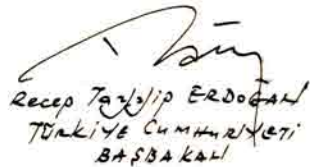 Recep Tayyip ERDOĞAN
TÜRKİYE CUMHURİYETİ
BAŞBAKANI